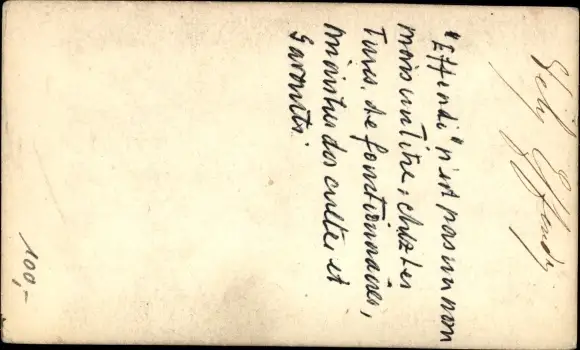 Effendi
"Effendi" n'est pas un nom
mais un titre, chez les
Turcs, de fonctionnaires,
ministres des cultes et
savants.
100,-